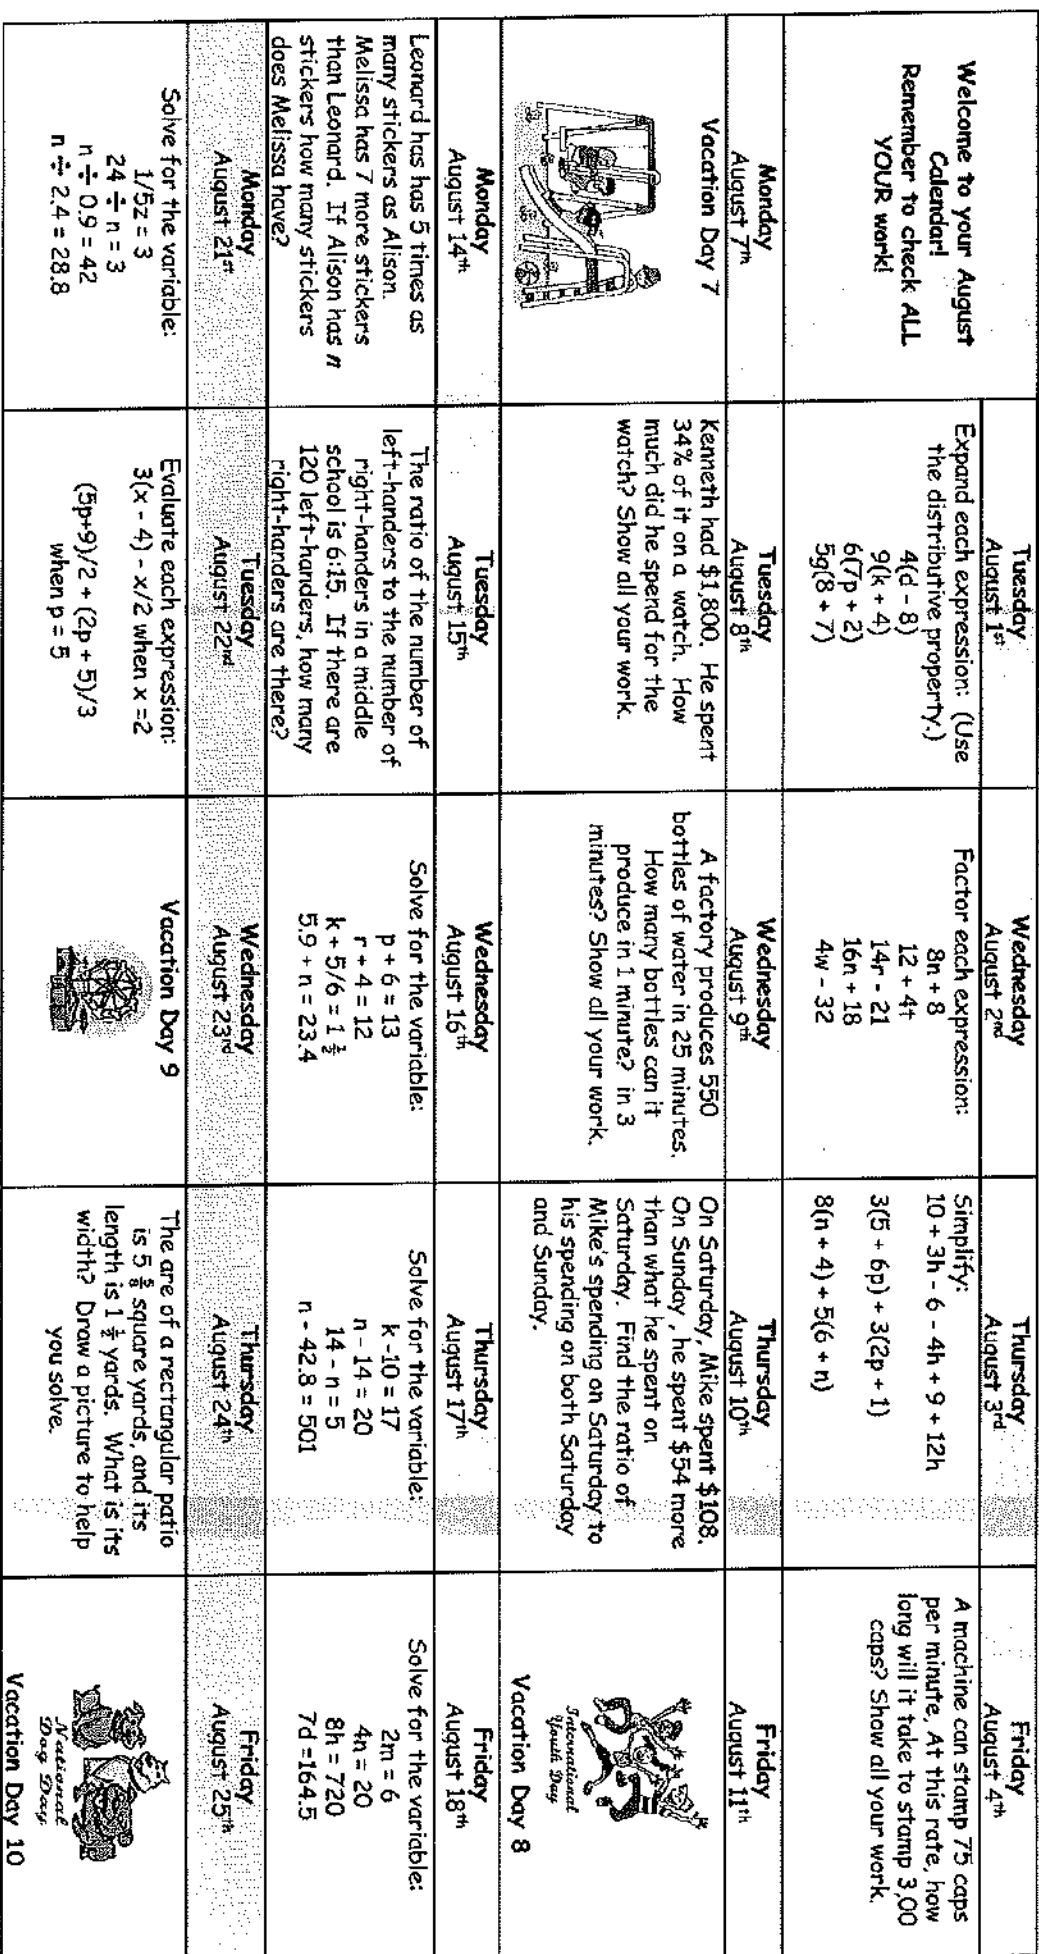 Welcome to your August
Calendar!
Remember to check ALL
YOUR work!
Tuesday
August 1st
Expand each expression: (Use
the distributive property.)
4(d - 8)
9(k + 4)
6(7p + 2)
5g(8 + 7)
Wednesday
August 2nd
Factor each expression:
8n + 8
12 + 4t
14r - 21
16n + 18
4w - 32
Thursday
August 3rd
Simplify:
10 + 3h - 6 - 4h + 9 + 12h
3(5 + 6p) + 3(2p + 1)
8(n + 4) + 5(6 + n)
Friday
August 4th
A machine can stamp 75 caps
per minute. At this rate, how
long will it take to stamp 3,00
caps? Show all your work.
Monday
August 7th
Vacation Day 7
Tuesday
August 8th
Kenneth had $1,800. He spent
34% of it on a watch. How
much did he spend for the
watch? Show all your work.
Wednesday
August 9th
A factory produces 550
bottles of water in 25 minutes.
How many bottles can it
produce in 1 minute? in 3
minutes? Show all your work.
Thursday
August 10th
On Saturday, Mike spent $108.
On Sunday, he spent $54 more
than what he spent on
Saturday. Find the ratio of
Mike's spending on Saturday to
his spending on both Saturday
and Sunday.
Friday
August 11th
International
Youth Day
Vacation Day 8
Monday
August 14th
Leonard has has 5 times as
many stickers as Alison.
Melissa has 7 more stickers
than Leonard. If Alison has n
stickers how many stickers
does Melissa have?
Tuesday
August 15th
The ratio of the number of
left-handers to the number of
right-handers in a middle
school is 6:15. If there are
120 left-handers, how many
right-handers are there?
Wednesday
August 16th
Solve for the variable:
p + 6 = 13
r + 4 = 12
k + 5/6 = 1 ½
5.9 + n = 23.4
Thursday
August 17th
Solve for the variable:
k -10 = 17
n - 14 = 20
14 - n = 5
n - 42.8 = 501
Friday
August 18th
Solve for the variable:
2m = 6
4n = 20
8h = 720
7d =164.5
Monday
August 21st
Solve for the variable:
1/5z = 3
24 ÷ n = 3
n ÷ 0.9 = 42
n ÷ 2.4 = 28.8
Tuesday
August 22nd
Evaluate each expression:
3(x - 4) - x/2 when x =2
(5p+9)/2 + (2p + 5)/3
when p = 5
Wednesday
August 23rd
Vacation Day 9
Thursday
August 24th
The are of a rectangular patio
is 5 ⅝ square yards, and its
length is 1 ½ yards. What is its
width? Draw a picture to help
you solve.
Friday
August 25th
National
Dog Day
Vacation Day 10